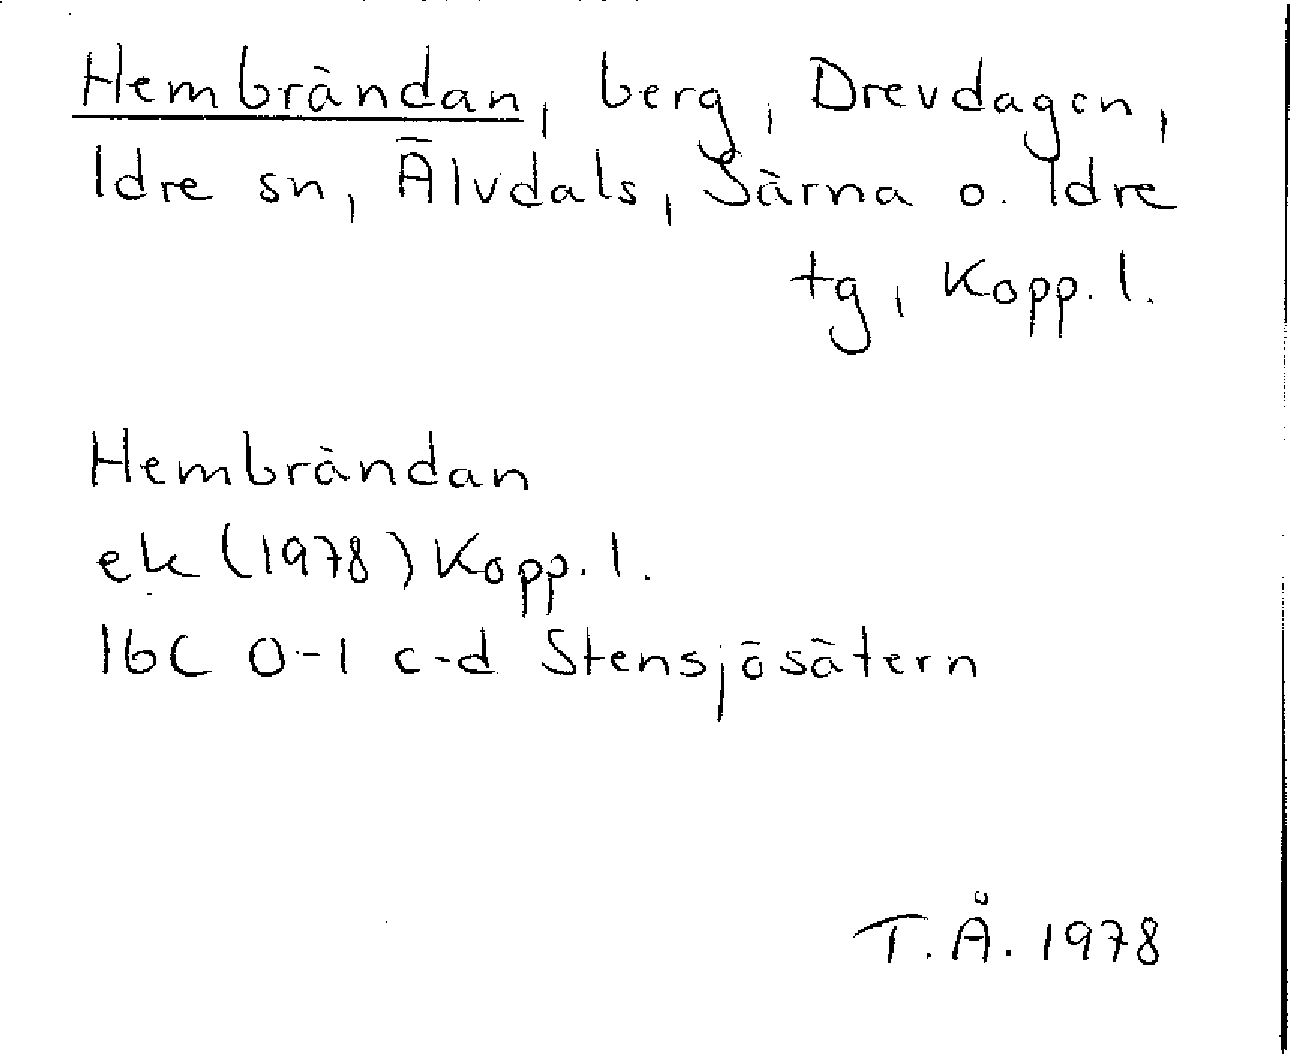 Hembrändan, berg, Drevdagen,
Idre sn, Älvdals, Särna o. Idre
tg, Kopp. l.
Hembrändan
ek (1978) Kopp. l.
16C 0-1 c-d Stensjösätern
T. Å. 1978